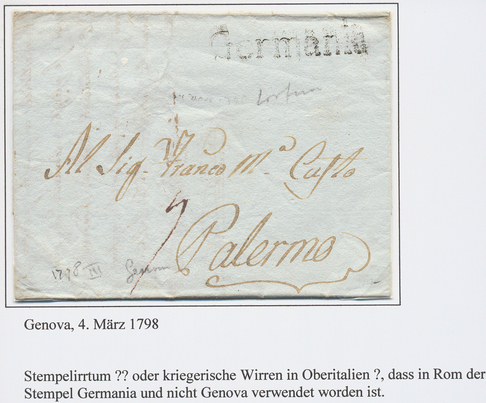 Germania
Al Sig. Franco M.a Custo
Palermo
1798 III
Genova, 4. März 1798
Stempelirrtum ?? oder kriegerische Wirren in Oberitalien ?, dass in Rom der
Stempel Germania und nicht Genova verwendet worden ist.